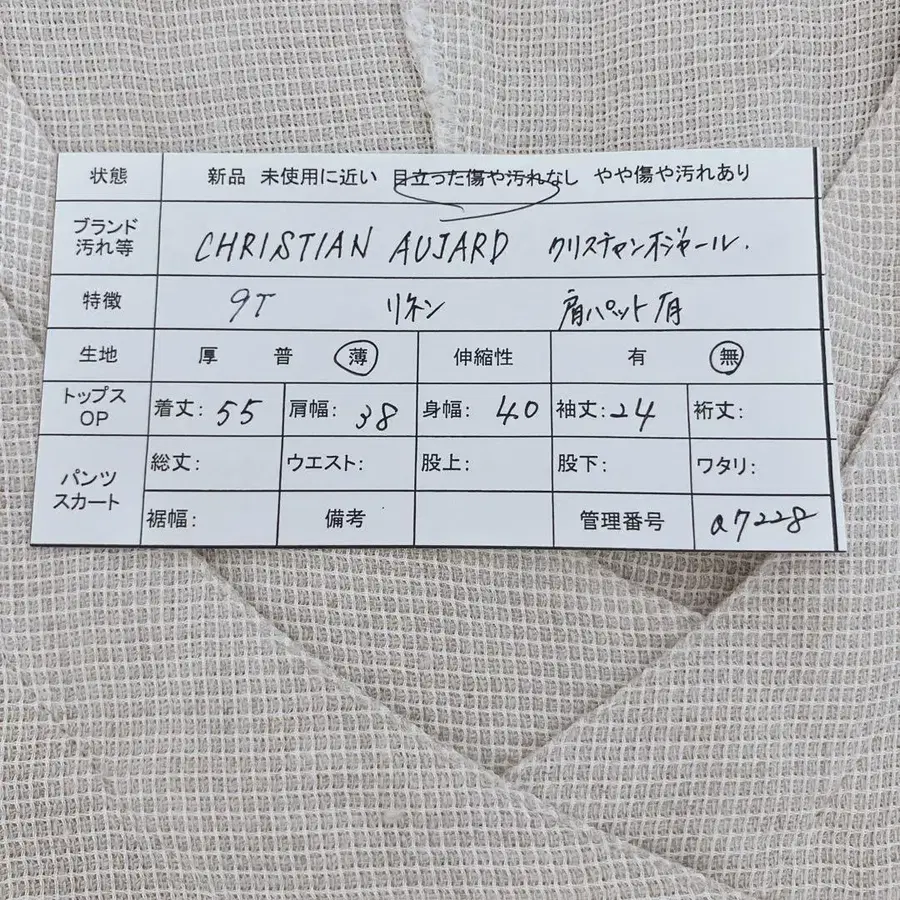 状態 新品 未使用に近い 目立った傷や汚れなし やや傷や汚れあり
ブランド
汚れ等 CHRISTIAN AUJARD クリスチャンオジャール.
特徴 9T リネン 肩パット有
生地 厚 普 薄 伸縮性 有 無
トップス
OP 着丈: 55 肩幅: 38 身幅: 40 袖丈: 24 裄丈:
パンツ
スカート 総丈: ウエスト: 股上: 股下: ワタリ:
裾幅: 備考 管理番号 a7228